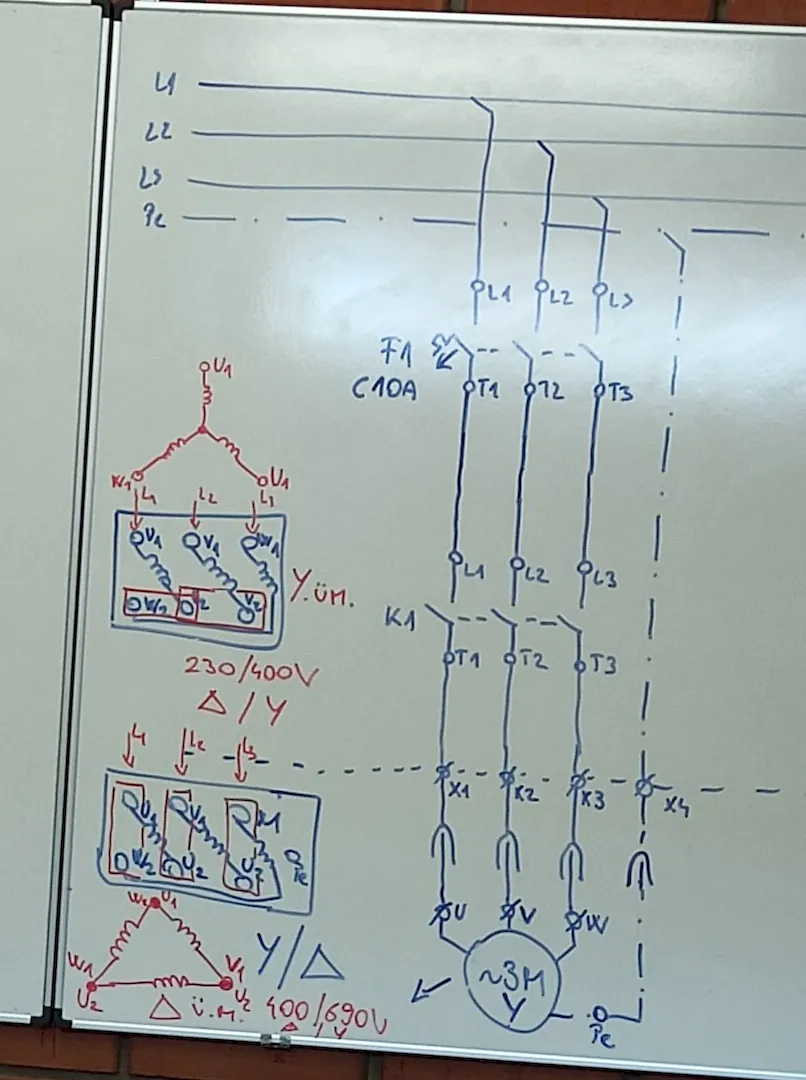 L1
L2
L3
Pe
L1 L2 L3
F1
C10A
T1 T2 T3
U1
W1 U1
L1 L2 L3
U1 V1 W1
W2 U2 V2
Y.üm.
230/400V
Δ / Y
L1 L2 L3
K1
T1 T2 T3
L1 L2 L3
X1 X2 X3 X4
U1 V1 W1
W2 U2 V2
Pe
U V W
W2 U1
W1 V1
U2 V2
Y/Δ
Δ ü.m. 400/690V
Δ / Y
~3M
Y
Pe